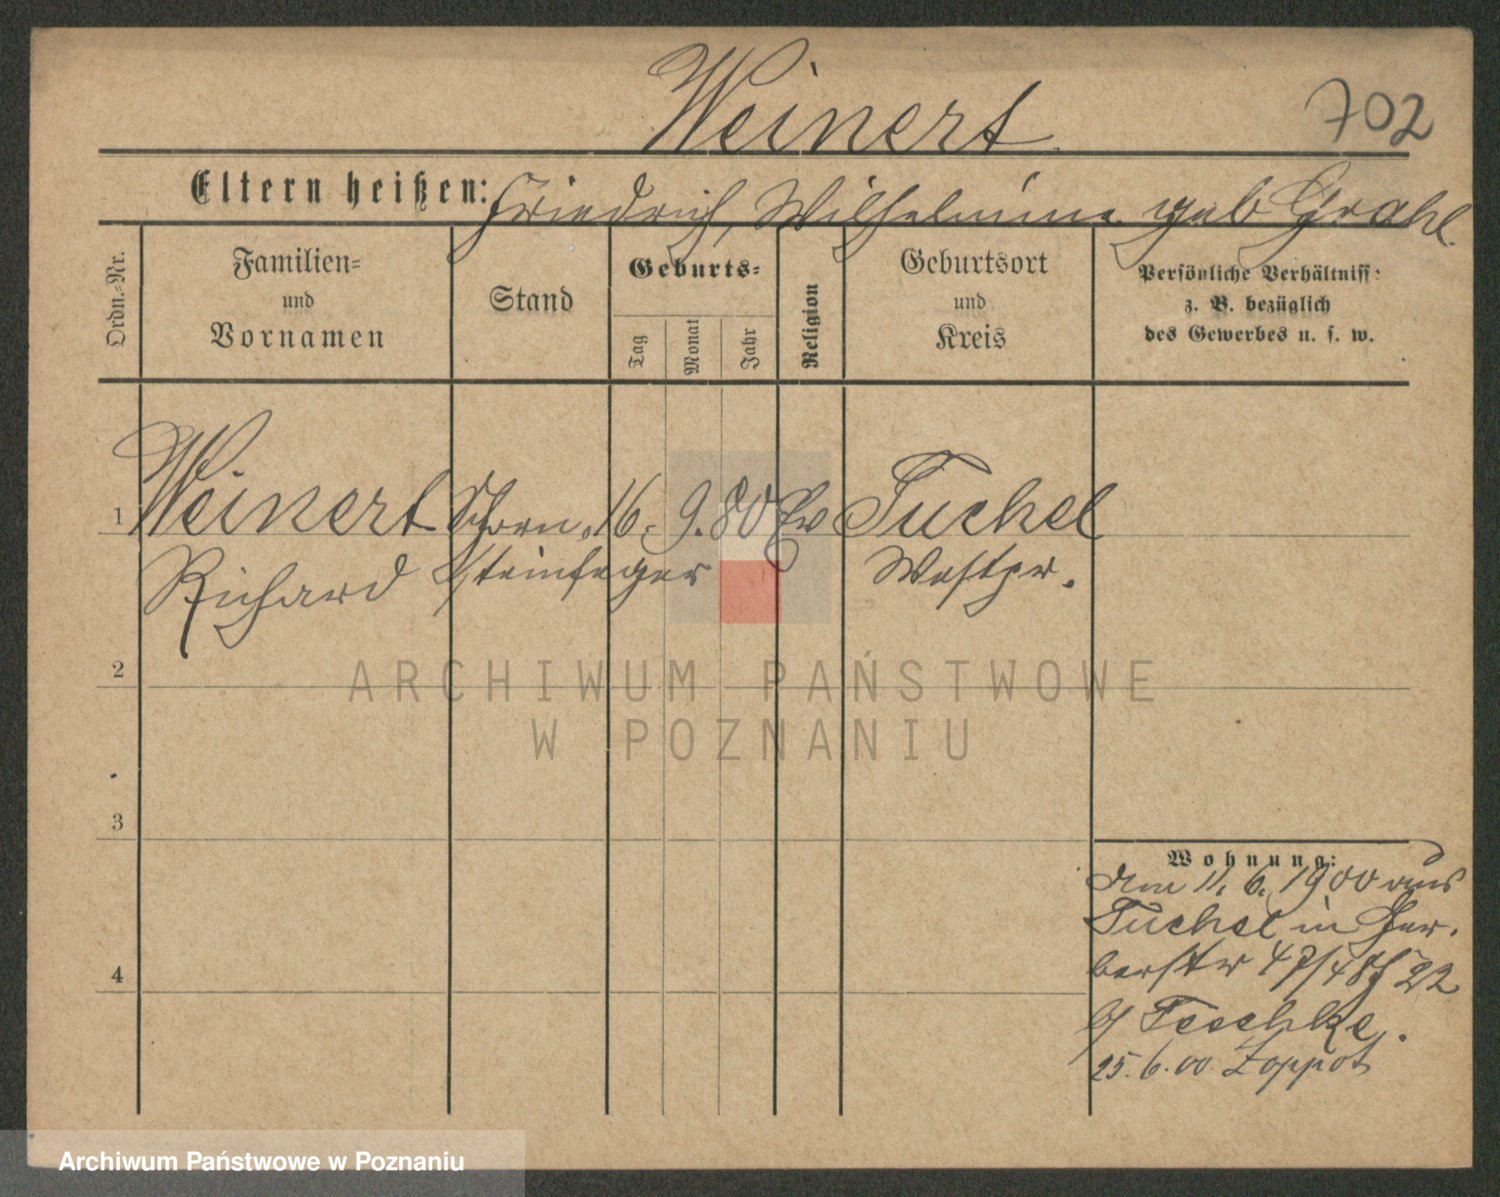 Weinert
702
Eltern heißen: Friedrich, Wilhelmine geb Grahl.
Ordn.-Nr.
Familien-
und
Vornamen
Stand
Geburts-:
Tag
Monat
Jahr
Religion
Geburtsort
und
Kreis
Persönliche Verhältniss:
z. B. bezüglich
des Gewerbes u. s. w.
1 Weinert Schorn- 16. 9. 80 Ev Tuchel
Richard steinfeger Westpr.
2
ARCHIWUM PAŃSTWOWE
W POZNANIU
3
4
Wohnung:
den 11. 6. 1900 aus
Tuchel in Ger-
berstr 47/48 22
b/ Teschke.
25.6.00. Zoppot
Archiwum Państwowe w Poznaniu